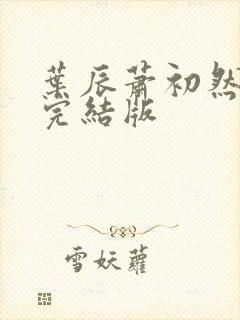 葉辰蕭初然
完結版
雪妖蘿